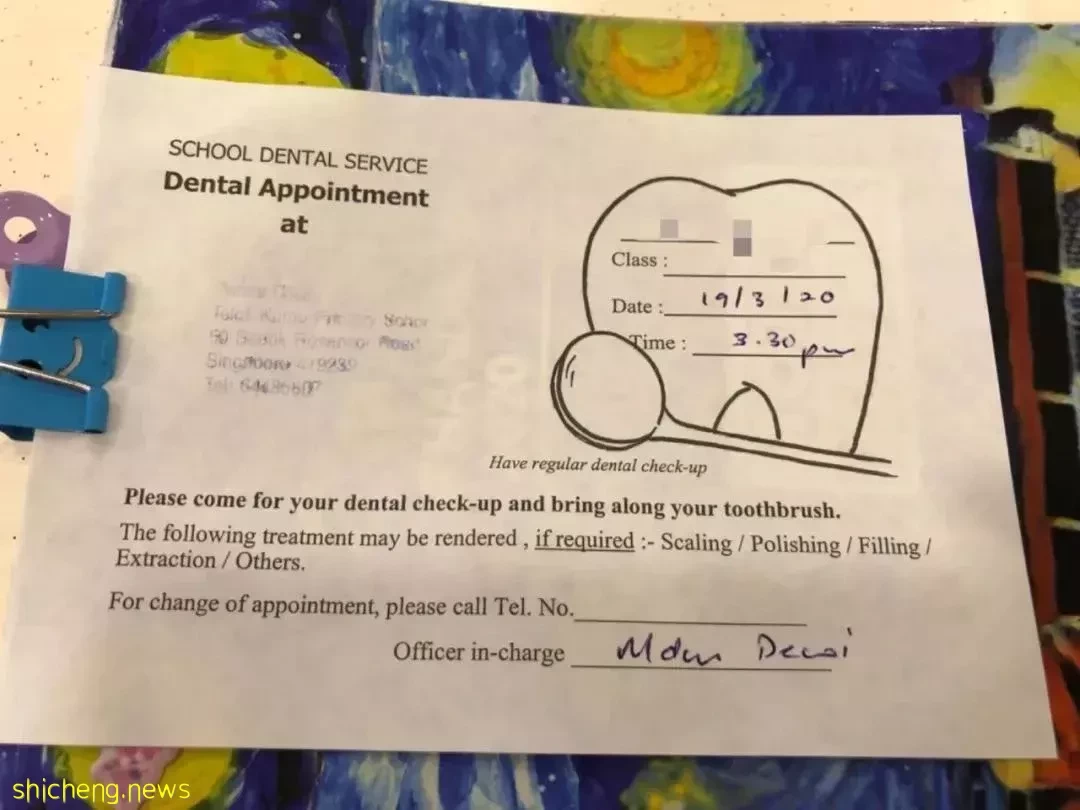 SCHOOL DENTAL SERVICE
Dental Appointment
at
Singapore
Tel:
Class :
Date : 19/3/20
Time : 3.30 pm
Have regular dental check-up
Please come for your dental check-up and bring along your toothbrush.
The following treatment may be rendered , if required :- Scaling / Polishing / Filling /
Extraction / Others.
For change of appointment, please call Tel. No.
Officer in-charge Mdm
shicheng.news